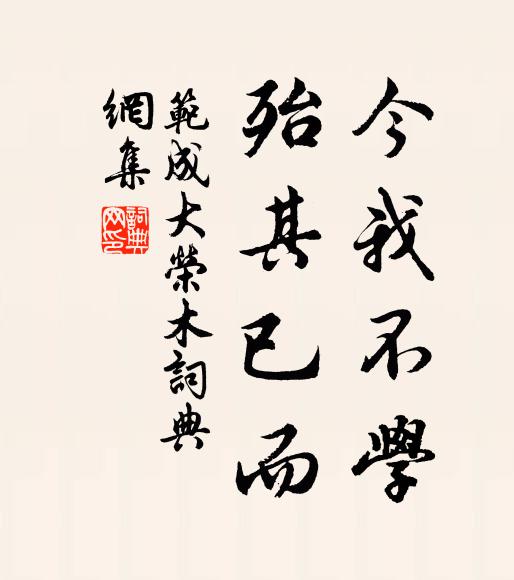 今我不學
殆其已而
範成大榮木詞典
網集
詞典網印